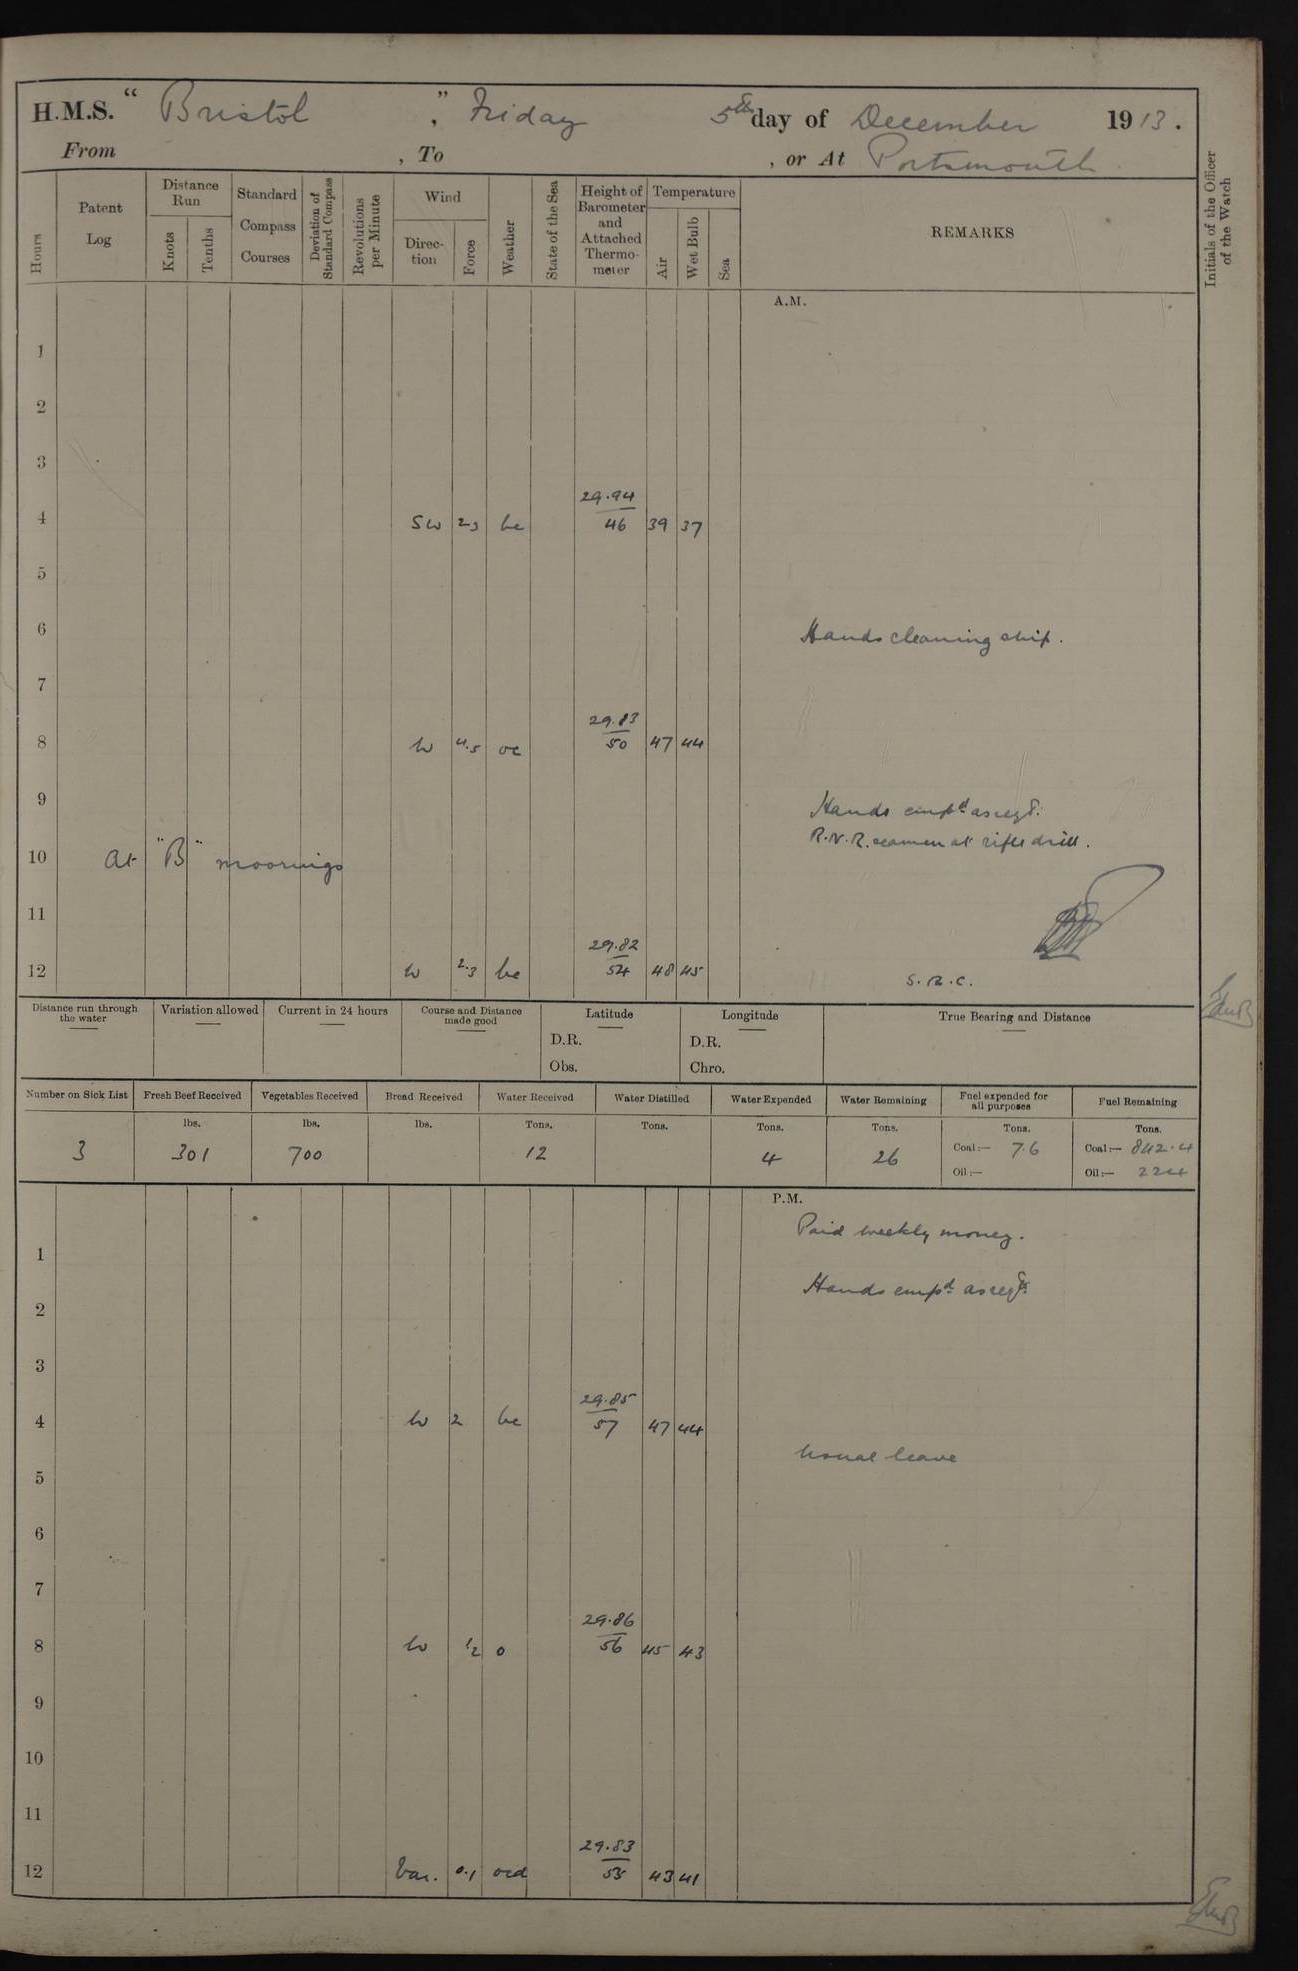 H.M.S. “ Bristol ” , Friday 5th day of December 1913.
From , To , or At Portsmouth
Hours
Patent Log
Distance Run
Knots
Tenths
Standard Compass Courses
Deviation of Standard Compass
Revolutions per Minute
Wind
Direc-tion
Force
Weather
State of the Sea
Height of Barometer and Attached Thermo-meter
Temperature
Air
Wet Bulb
Sea
REMARKS
Initials of the Officer of the Watch
A.M.
1
2
3
29.94
4 SW 2.3 bc 46 39 37
5
6 Hands cleaning ship.
7
29.83
8 W 4.5 oc 50 47 44
9 Hands empd as reqd.
R.N.R. seamen at rifle drill.
10 At "B" moorings
11
29.82
12 W 2.3 bc 54 48 45
S.R.C.
Distance run through the water
Variation allowed
Current in 24 hours
Course and Distance made good
Latitude
D.R.
Obs.
Longitude
D.R.
Chro.
True Bearing and Distance
Number on Sick List Fresh Beef Received Vegetables Received Bread Received Water Received Water Distilled Water Expended Water Remaining Fuel expended for all purposes Fuel Remaining
lbs. lbs. lbs. Tons. Tons. Tons. Tons. Tons. Tons.
3 301 700 12 4 26 Coal:— 7.6 Coal:— 842.4
Oil:— Oil:— 224
P.M.
Paid weekly money.
1
Hands empd as reqd.
2
3
29.85
4 W 2 bc 57 47 44
Usual leave
5
6
7
29.86
8 W 1/2 o 56 45 43
9
10
11
29.83
12 Var. 0.1 ocd 55 43 41